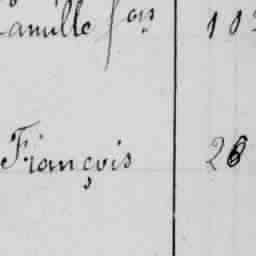 Camille fçois 102
François 26